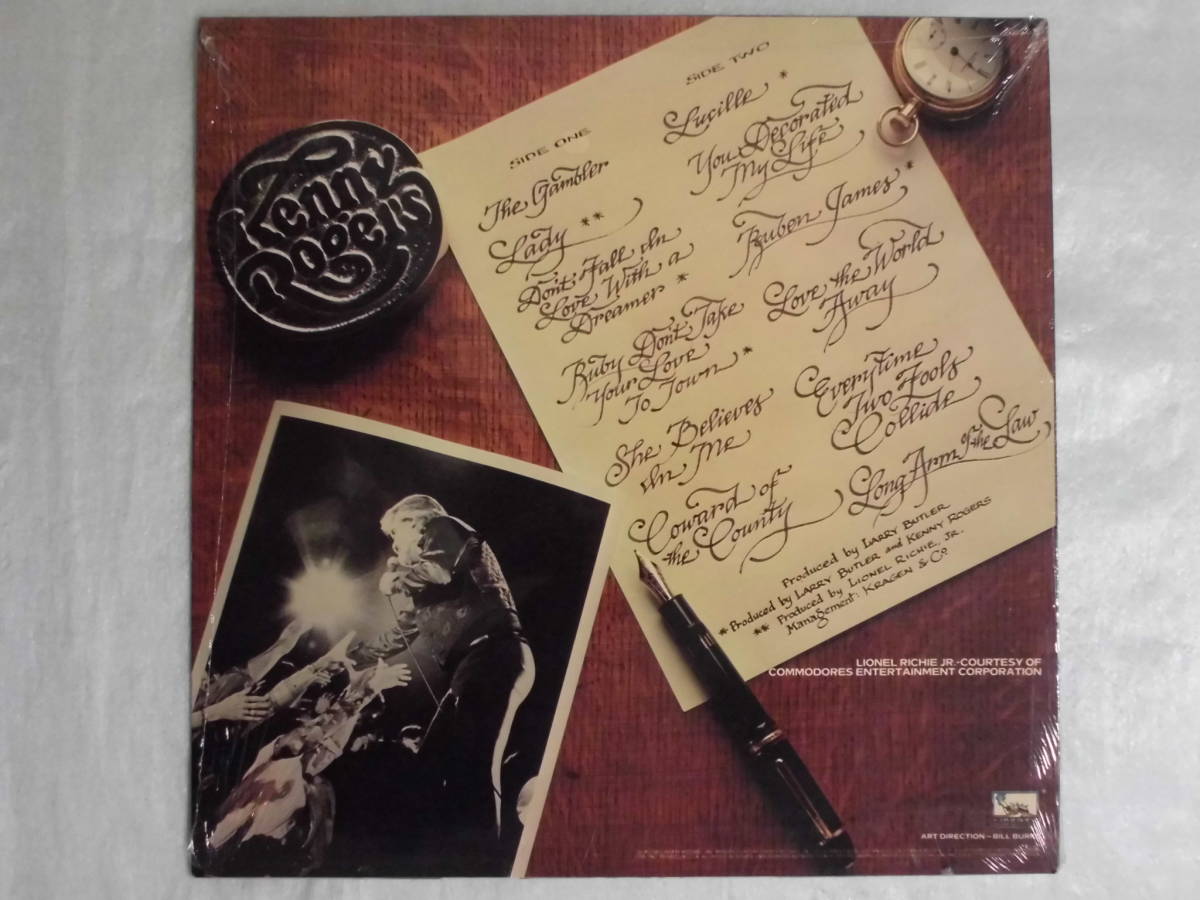 Kenny
Rogers
SIDE ONE
The Gambler
Lady **
Don't Fall In
Love With a
Dreamer *
Ruby Don't Take
Your Love
To Town *
She Believes
In Me
Coward of
the County
SIDE TWO
Lucille *
You Decorated
My Life
Ruben James *
Love the World
Away
Everytime
Two Fools
Collide
Long Arm of the Law
Produced by LARRY BUTLER
*Produced by LARRY BUTLER and KENNY ROGERS
** Produced by LIONEL RICHIE, JR.
Management: KRAGEN & CO
LIONEL RICHIE JR.-COURTESY OF
COMMODORES ENTERTAINMENT CORPORATION
LIBERTY
ART DIRECTION—BILL